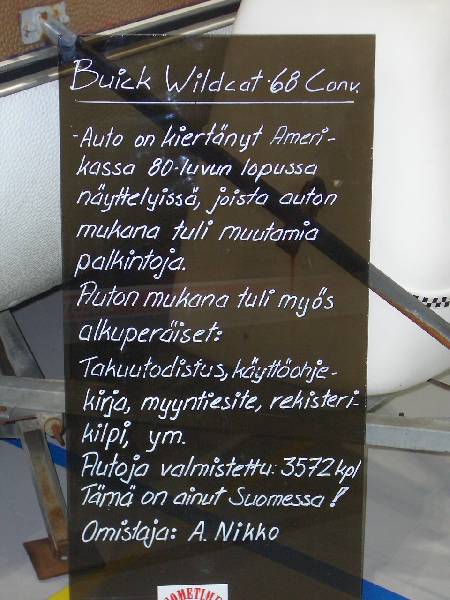 Buick Wildcat '68 Conv.
- Auto on kiertänyt Ameri-
kassa 80-luvun lopussa
näyttelyissä, joista auton
mukana tuli muutamia
palkintoja.
Auton mukana tuli myös
alkuperäiset:
Takuutodistus, käyttöohje-
kirja, myyntiesite, rekisteri-
kilpi, ym.
Autoja valmistettu: 3572 kpl
Tämä on ainut Suomessa!
Omistaja: A. Nikko